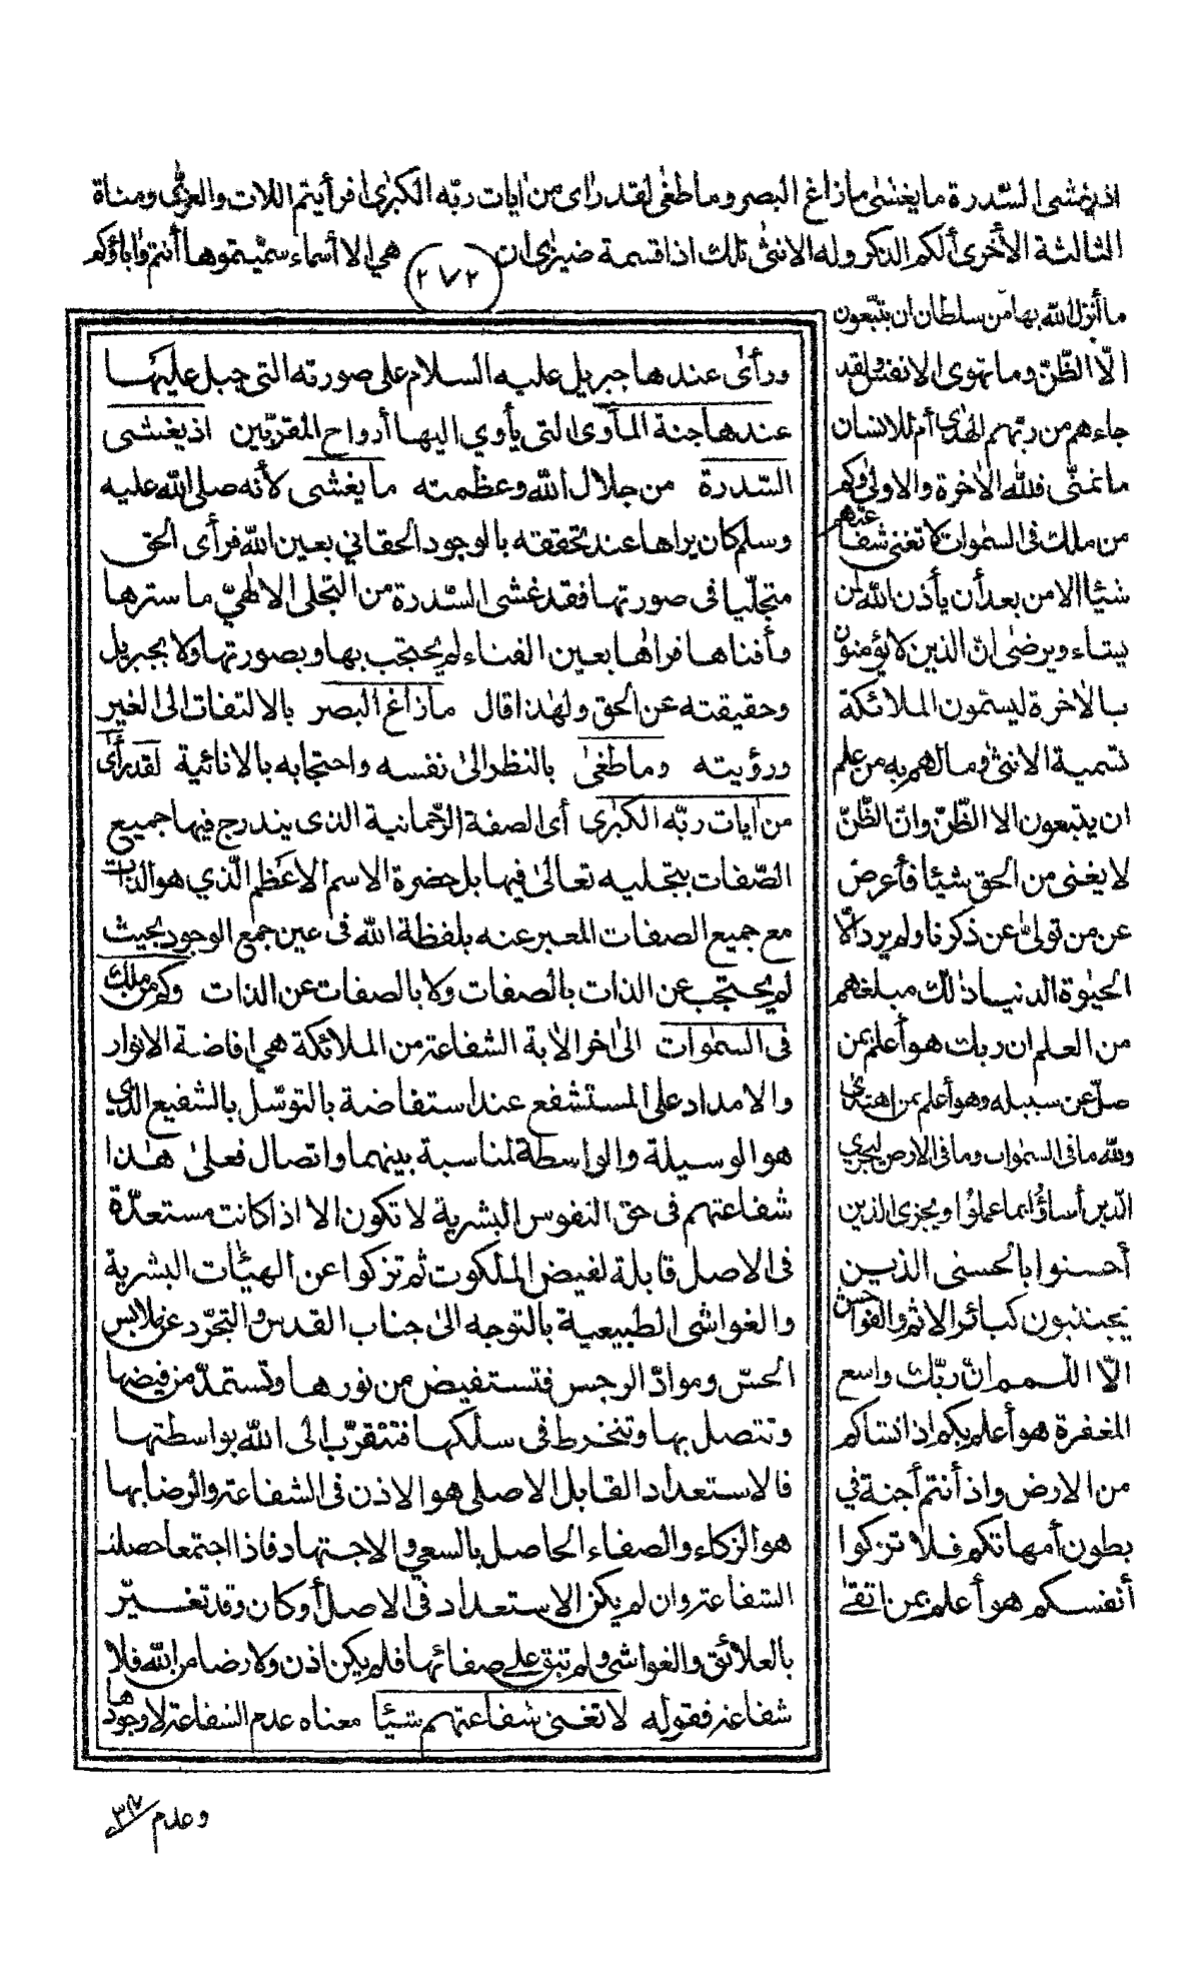 اذ يغشى السّدرة ما يغشىٰ ما زاغ البصر وما طغىٰ لقد رأى من اٰيات ربّه الكبرىٰ افرأيتم اللات والعزّٰى ومناة
الثالثة الاخرىٰ ألكم الذكر وله الانثىٰ تلك اذا قسمة ضيزىٰ ان هي الا أسماء سمّيتموها أنتم واٰباؤكم
٢٧٢
ما أنزل الله بها من سلطان ان يتبّعون
الّا الظّنّ وما تهوى الانفس ولقد
جاءهم من ربّهم الهدىٰ أم للانسان
ما تمنّى فلله الاٰخرة والاولىٰ وكم
من ملك في السمٰوات لا تغنى شفاعتهم
شيئا الا من بعد أن يأذن الله لمن
يشاء ويرضىٰ انّ الذين لا يؤمنون
بالاٰخرة ليسمّون الملائكة
تسمية الانثىٰ وما لهم به من علم
ان يتبعون الا الظّنّ وانّ الظّنّ
لا يغنى من الحق شيئا فأعرض
عن من تولىٰ عن ذكرنا ولم يرد الّا
الحيٰوة الدنيا ذٰلك مبلغهم
من العلم ان ربك هو أعلم بمن
ضلّ عن سبيله وهو أعلم بمن اهتدىٰ
ولله ما في السمٰوات وما في الارض ليجزي
الّذين أساؤا بما عملوا ويجزى الذين
أحسنوا بالحسنى الذين
يجتنبون كبائر الاثم والفواحش
الّا اللمم انّ ربّك واسع
المغفرة هو أعلم بكم اذ انشاكم
من الارض واذ أنتم أجنة في
بطون أمهاتكم فلا تزكوا
أنفسكم هو أعلم بمن اتقىٰ
ورأىٰ عندها جبريل عليه السلام على صورته التي جبل عليها
عندها جنة المأوىٰ التي يأوي اليها أرواح المقرّبين اذ يغشى
السّدرة من جلال الله وعظمته ما يغشى لأنه صلى الله عليه
وسلم كان يراها عند تحققه بالوجود الحقاني بعين الله فرأى الحق
متجلّيا في صورتها فقد غشى السّدرة من التجلى الالٰهيّ ما سترها
وأفناها فراٰها بعين الفناء لم يحتجب بها وبصورتها ولا بجبريل
وحقيقته عن الحق ولهٰذا قال ما زاغ البصر بالالتفات الى الغير
ورؤيته وما طغىٰ بالنظر الىٰ نفسه واحتجابه بالانائية لقد رأى
من اٰيات ربّه الكبرٰى أى الصفة الرّحمانية الذى يندرج فيها جميع
الصّفات بتجليه تعالىٰ فيها بل حضرة الاسم الاعظم الّذي هو الذات
مع جميع الصفات المعبر عنه بلفظة الله في عين جمع الوجود بحيث
لم يحتجب عن الذات بالصفات ولا بالصفات عن الذات وكم من ملك
في السمٰوات الىٰ اٰخر الاٰية الشفاعة من الملائكة هي افاضة الانوار
والامداد على المستشفع عند استفاضة بالتوسّل بالشفيع الذي
هو الوسيلة والواسطة لمناسبة بينهما واتصال فعلىٰ هٰذا
شفاعتهم في حق النفوس البشرية لا تكون الا اذا كانت مستعدّة
في الاصل قابلة لفيض الملكوت ثم تزكوا عن الهيئٰات البشرية
والغواشى الطبيعية بالتوجه الىٰ جناب القدس والتجرّد عن ملابس
الحسّ وموادّ الرجس فتستفيض من نورها وتستمدّ من فيضها
وتتصل بها وتنخرط في سلكها فتتقرّب الى الله بواسطتها
فالاستعداد القابل الاصلى هو الاذن في الشفاعة والرضا بها
هو الزكاء والصفاء الحاصل بالسعي والاجتهاد فاذا اجتمعا حصلت
الشفاعة وان لم يكن الاستعداد في الاصل أو كان وقد تغيّر
بالعلائق والغواشى ولم تبق على صفائها فلم يكن اذن ولا رضا من الله فلا
شفاعة فقوله لا تغنى شفاعتهم شيئا معناه عدم الشفاعة لا وجودها
وعدم